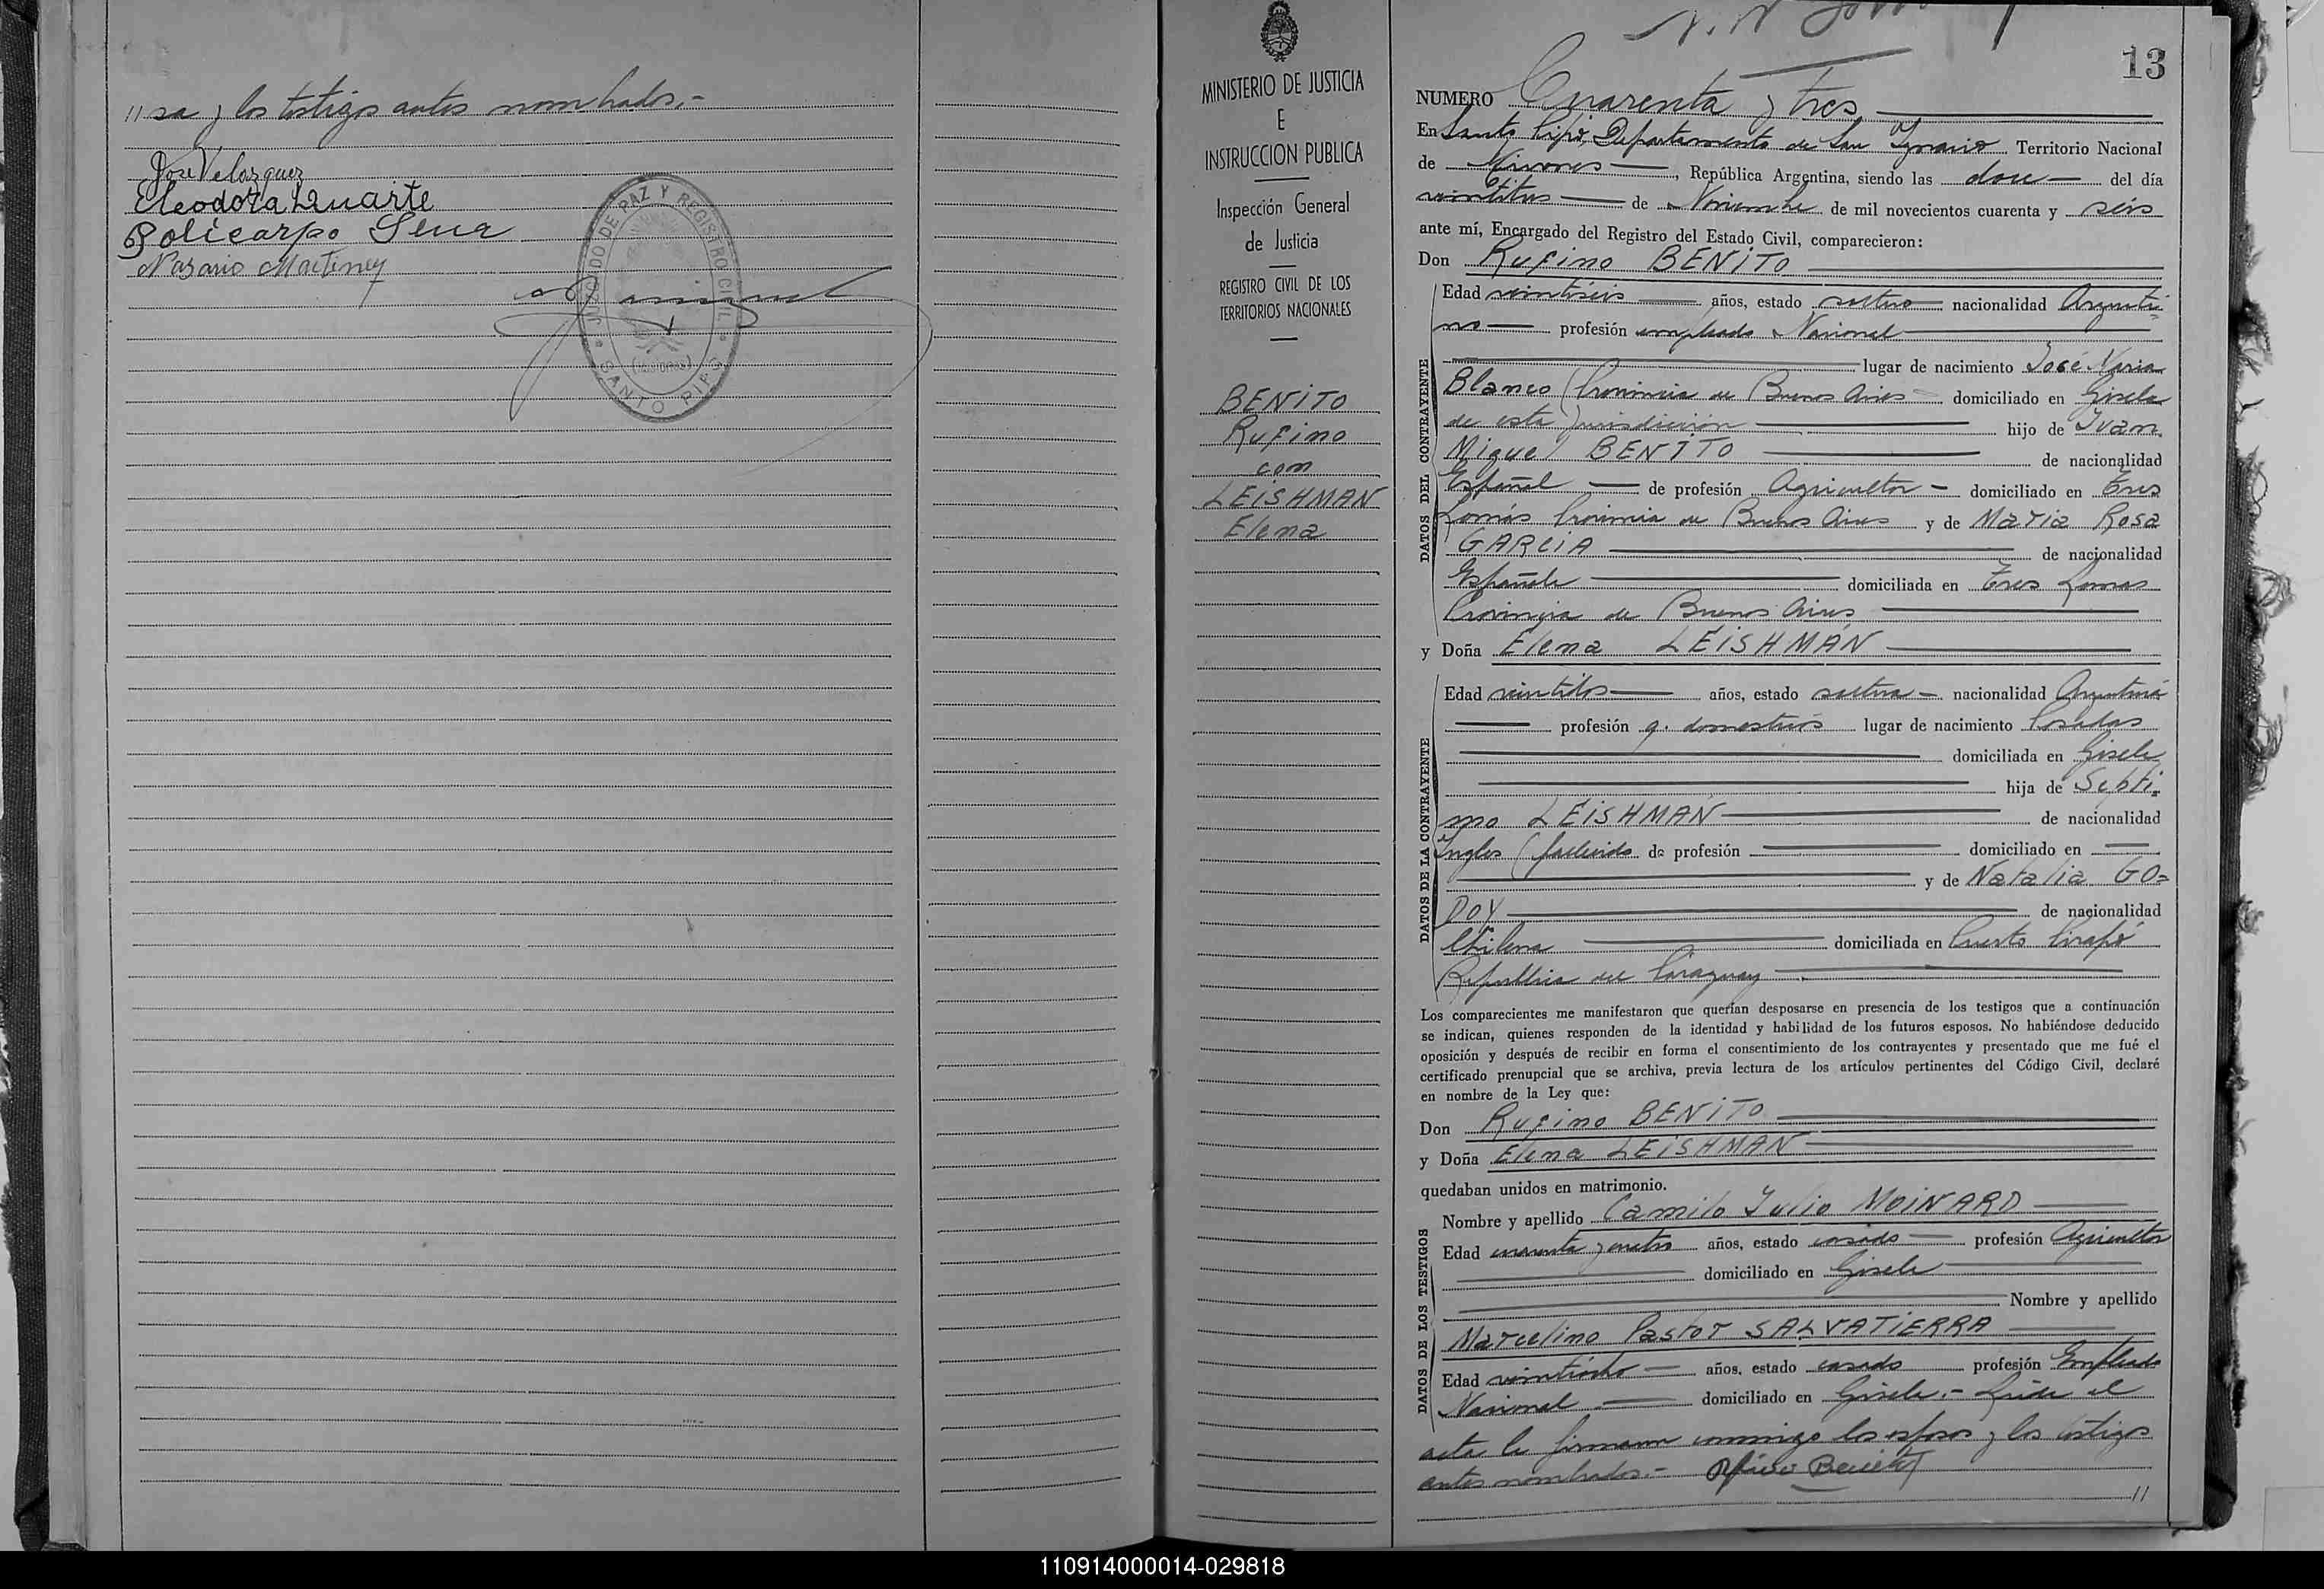 // sa y los testigos antes nombrados.-
José Velazquez
Eleodora Duarte
Policarpo
Nazario Martinez
JUZGADO DE PAZ Y REGISTRO CIVIL
(MISIONES)
SANTO PIPO
MINISTERIO DE JUSTICIA
E
INSTRUCCION PUBLICA
Inspección General
de Justicia
REGISTRO CIVIL DE LOS
TERRITORIOS NACIONALES
BENITO
Rufino
con
LEISHMAN
Elena
13
NUMERO Cuarenta y tres
En Santo Pipó, Departamento de San Ignacio Territorio Nacional
de Misiones, República Argentina, siendo las doce del día
de Noviembre de mil novecientos cuarenta y seis
ante mí, Encargado del Registro del Estado Civil, comparecieron:
Don Rufino BENITO
DATOS DEL CONTRAYENTE
Edad veintiseis años, estado soltero nacionalidad Argenti-
no profesión empleado Nacional
lugar de nacimiento José Maria
Blanco Provincia de Buenos Aires domiciliado en Gisela
de esta jurisdicción hijo de Juan
Miguel BENITO de nacionalidad
Español de profesión Agricultor - domiciliado en Tres
Lomas Provincia de Buenos Aires y de Maria Rosa
GARCIA de nacionalidad
Española domiciliada en Tres Lomas
Provincia de Buenos Aires
y Doña Elena LEISHMAN
DATOS DE LA CONTRAYENTE
Edad veintidos años, estado soltera - nacionalidad Argentina
profesión q. domesticos lugar de nacimiento Posadas
domiciliada en Gisela
hija de Septi-
mo LEISHMAN de nacionalidad
Ingles (fallecido de profesión domiciliado en
y de Natalia GO=
DOY de nacionalidad
Chilena domiciliada en Puerto Pirapó
Republica del Paraguay
Los comparecientes me manifestaron que querían desposarse en presencia de los testigos que a continuación
se indican, quienes responden de la identidad y habilidad de los futuros esposos. No habiéndose deducido
oposición y después de recibir en forma el consentimiento de los contrayentes y presentado que me fué el
certificado prenupcial que se archiva, previa lectura de los artículos pertinentes del Código Civil, declaré
en nombre de la Ley que:
Don Rufino BENITO
y Doña Elena LEISHMAN
quedaban unidos en matrimonio.
DATOS DE LOS TESTIGOS
Nombre y apellido Camilo Julio MOINARD
Edad cuarenta y cuatro años, estado casado profesión Agricultor
domiciliado en Gisela
Nombre y apellido
Marcelino Pastor SALVATIERRA
Edad veintiocho años, estado casado profesión Empleado
Nacional domiciliado en Gisela.- Leida el
acta la firmaron conmigo los esposos y los testigos
antes nombrados.- Rufino Benito
//
110914000014-029818